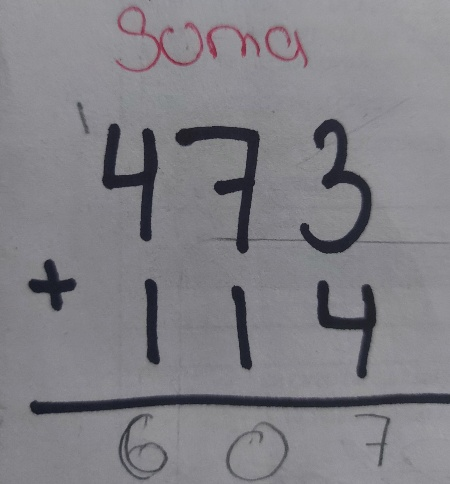 Soma
1
473
+ 114
607